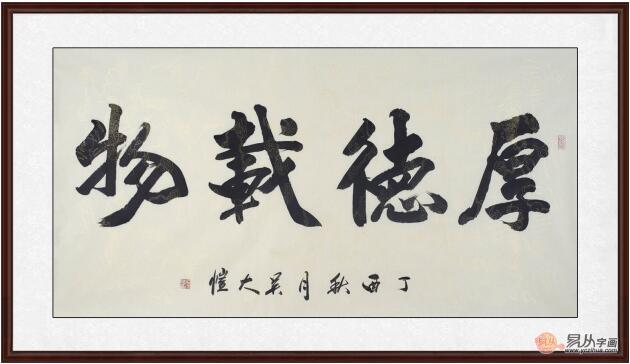 厚德載物
丁酉秋月吴大恺
易从字画
www.yczihua.com